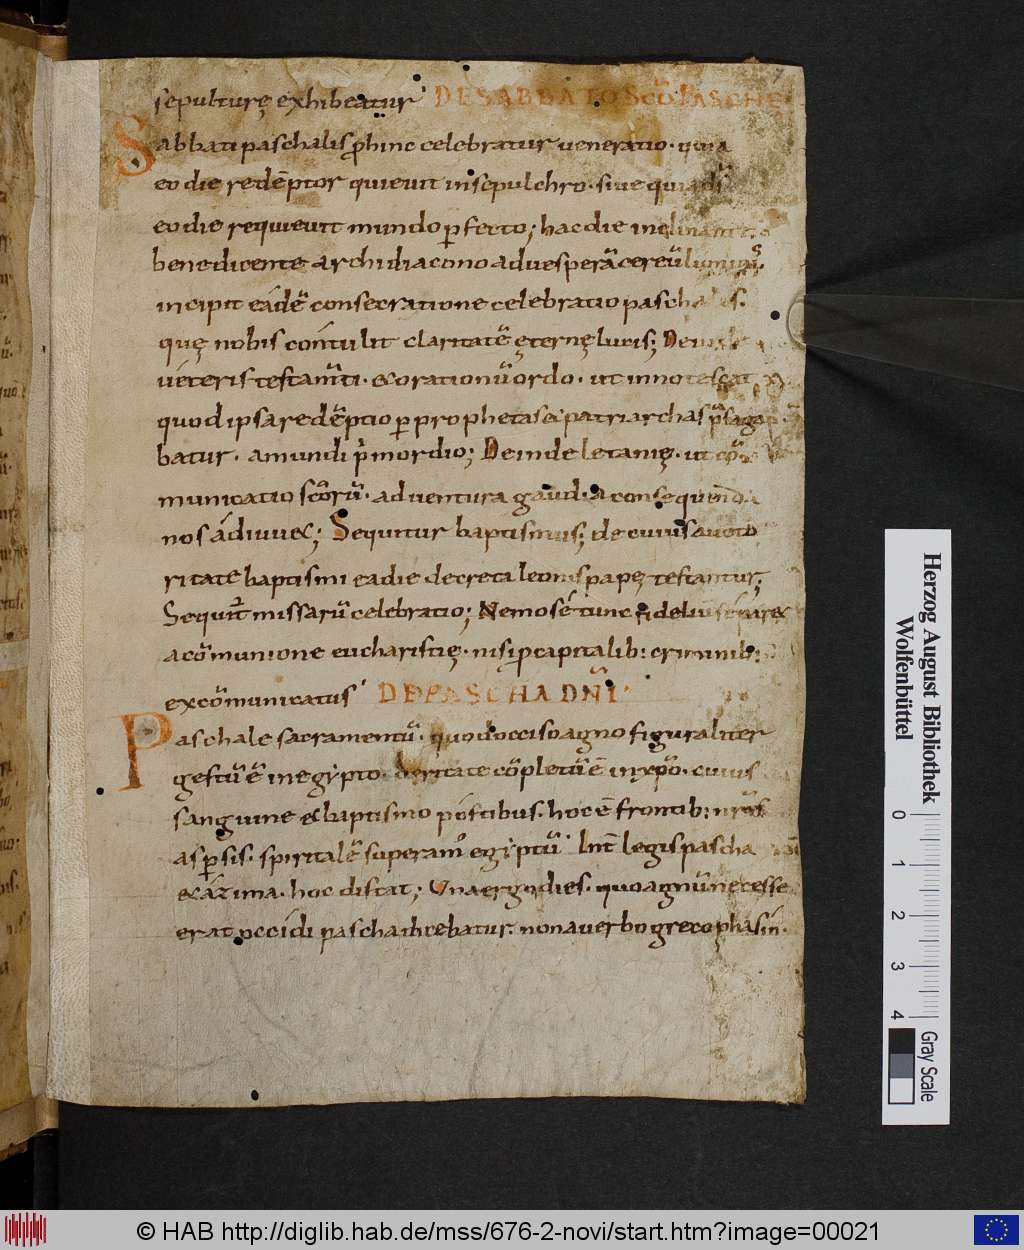 sepulturę exhibeatur DE SABBATO SC̄O PASCHE
Sabbati paschalis p̄hinc celebratur ueneratio· quia
eo die redēptor quieuit insepulchro· siue quia
eo die requieuit mundo ꝑfecto; hac die inclinante
benedicente archidiacono aduesperā cereū luminis
incipit eádē consecratione celebratio paschalis.
quę nobis cóntulit claritatē ęternę lucis; Deinde
uéteris testam̄ti· & orationū ordo· ut innotescat
quod ipsa redēptio ꝑ prophetas & patriarchas p̄saga
batur· a mundi p̄mordio; Deinde letanię· ut cō
municatio scōrū· ad uentura gaudia consequenda
nos ádiuu&; Sequitur baptismus; de cuius aucto
ritate baptismi eadie decreta leonis papę testantur;
Sequit̄ missarū celebratio; Nemo sé tunc
acōmunione eucharistię· nisi ꝑ capitalib: criminib:
excōmunicatus DE PASCHA DN̄I
Paschale sacramentū· quod occiso agno figuraliter
gestū ē in egypto· ueritate cōpletū ē in xp̄o· cuius
sanguine & baptismo póstibus· hoc ē frontib: nr̄is
asꝑsis· spiritalē superam᾿ egyptū· Int̄ legis pascha
& ázima· hoc distat; Una ergo dies· quo agnū necesse
erat occídi pascha dicebatur· non a uerbo greco phasín·
Herzog August Bibliothek
Wolfenbüttel
0 1 2 3 4
Gray Scale
© HAB http://diglib.hab.de/mss/676-2-novi/start.htm?image=00021